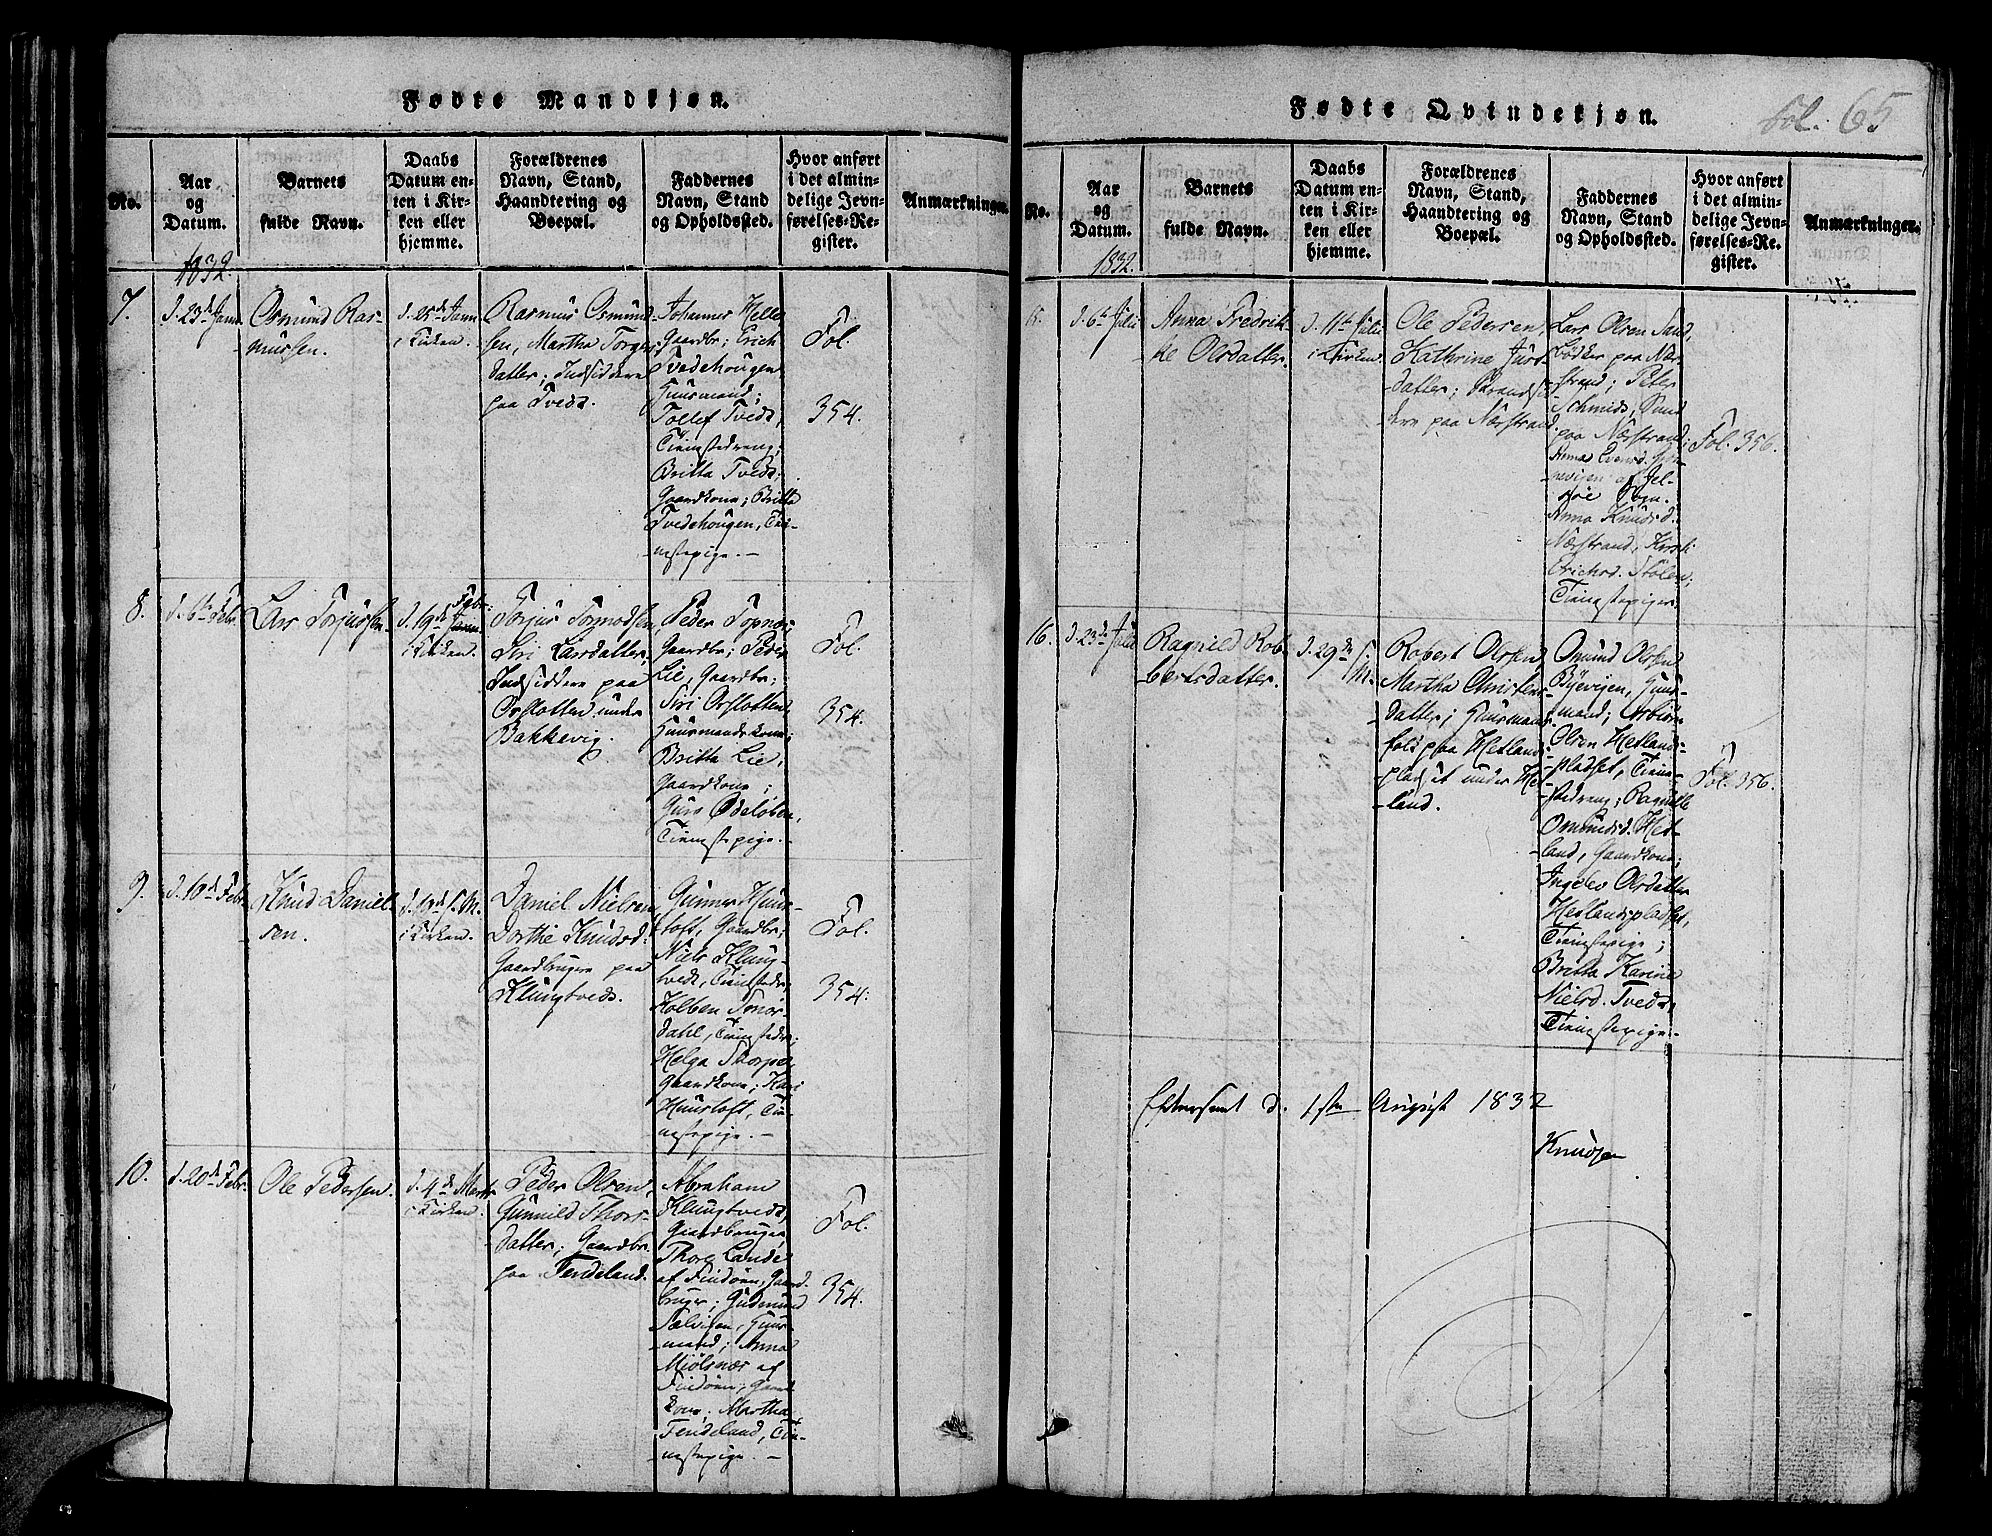 Fødte Mandkjøn.
No.
Aar
og
Datum.
Barnets
fulde Navn.
Daabs
Datum en-
ten i Kir-
ken eller
hjemme.
Forældrenes
Navn, Stand,
Haandtering og
Boepæl.
Faddernes
Navn, Stand
og Opholdsted.
Hvor anført
i det almin-
delige Jevn-
førelses-Re-
gister.
Anmærkninger.
1832.
7.
d. 23de Janr
Osmund Ras-
mussen.
d. 25de Janr
i Kirken.
Rasmus Osmund-
sen, Martha Torges-
datter; Indsiddere
paa Tvedt.
Johannes Helle
Gaardbr; Erich
Tvedehougen
Huusmand;
Tollef Tvedt,
Tienistedreng;
Britta Tvedt,
Gaardkone; Britta
Tvedehougen, Tie-
nestepige. -
Fol.
354.
8.
d. 6te Febr.
Lars Torjussen
d. 19de Febr.
i Kirken.
Torjus Tormodsen,
Siri Larsdatter,
Indsiddere paa
Orslotten under
Bakkevig.
Peder Topnæs,
Gaardbr; Peder
Lie, Gaardbr;
Siri Orslotten,
Huusmandskone;
Britta Lie,
Gaardkone;
Guro Ødeløben,
Tienistepige. -
Fol.
354.
9.
d. 10de Febr.
Knud Daniel-
sen.
d. 19de s. M.
i Kirken.
Daniel Nielsen,
Dorthe Knudsd:
Gaardbrugere paa
Klungtvedt.
Gunner Huus-
loft, Gaardbr;
Niels Klung-
tvedt, Tienistedr;
Kolben Tenor-
dahl, Tienistedr;
Helga Thorpe,
Gaardkone; Kari
Huusloft, Tie-
nestepige. -
Fol.
354.
10.
d. 20de Febr.
Ole Pedersen.
d. 4de Marts
i Kirken.
Peder Olsen,
Gunnild Thors-
datter; Gaardbr.
paa Fendeland.
Abraham
Klungtvedt,
Gaardbruger,
Thore Lande
af Findøen, Gaard-
bruger; Gudmund
Huus-
mand; Anna
Miølsnæs af
Findøen, Gaard-
kone. Martha
Fendeland, Tie-
nestepige. -
Fol.
354.
Fødte Qvindekjøn.
Fol. 65
No.
Aar
og
Datum.
Barnets
fulde Navn.
Daabs
Datum en-
ten i Kir-
ken eller
hjemme.
Forældrenes
Navn, Stand,
Haandtering og
Boepæl.
Faddernes
Navn, Stand
og Opholdsted.
Hvor anført
i det almin-
delige Jevn-
førelses-Re-
gister.
Anmærkninger.
1832.
15.
d. 6te Julii
Anna Fredrik-
ke Olsdatter.
d. 11te Julii
i Kirken.
Ole Pedersen,
Kathrine Juris-
datter; Strandsid-
dere paa Nærstrand.
Lars Olsen Sand,
Bødker paa Nær-
strand; Peter
Schmidt,
paa Nærstrand;
af Jel-
søe Sogn.
Anna Knudsd.
Nærstrand, Kirsti
Erichsd. Stølen;
Tienistepiger.
Fol. 356.
16.
d. 23de Julii
Ragnild Rob-
bertsdatter.
d. 29de s.
M.
Robert Olsen,
Martha Christens-
datter; Huusmands-
folk paa Hetlands-
pladset under Het-
land.
Omund Olsen
Byevigen, Huus-
mand;
Olsen Hetlands-
pladset, Tieni-
stedreng; Ragnild
Omundsd. Het-
land, Gaardkone;
Ingebor Olsdatter
Hetlandspladset,
Tienistepige;
Britta Karine
Nielsd. Tvedt,
Tienistepige.
Fol. 356.
Efterseet d. 1ste August 1832
Knudsen